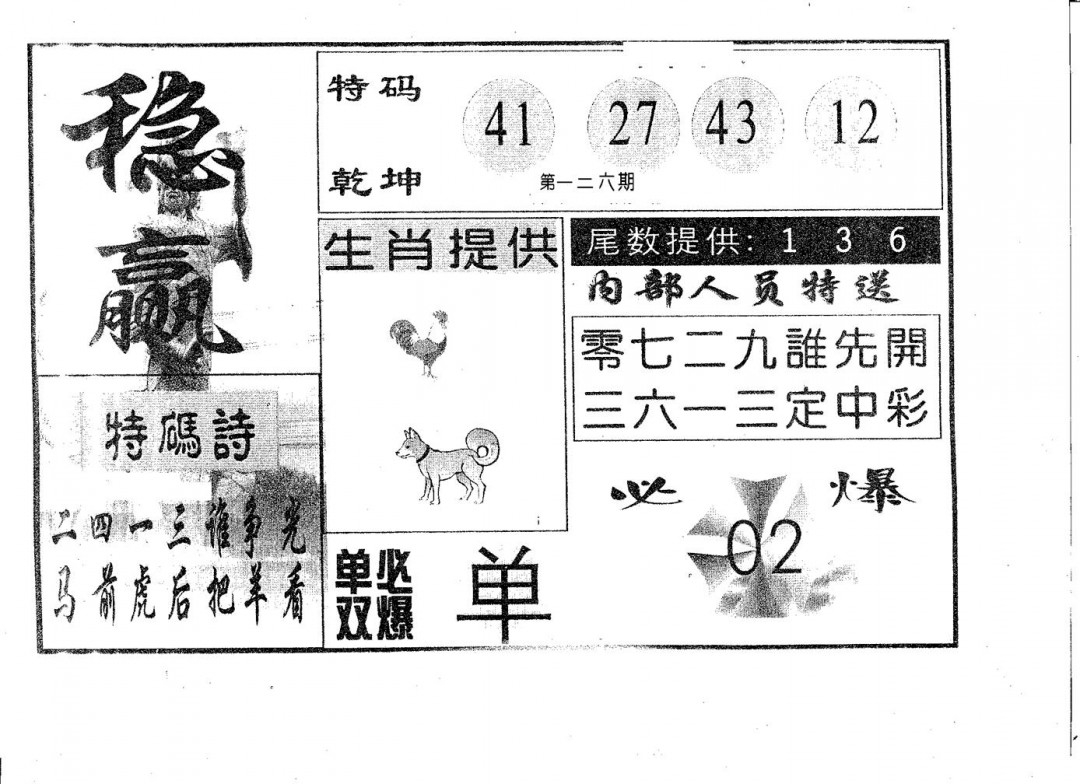 稳赢
特码
乾坤
41 27 43 12
第一二六期
生肖提供
尾数提供: 1 3 6
内部人员特送
零七二九誰先開
三六一三定中彩
特碼詩
二四一三谁争光
马前虎后把羊看
必爆
02
单双
必爆
单